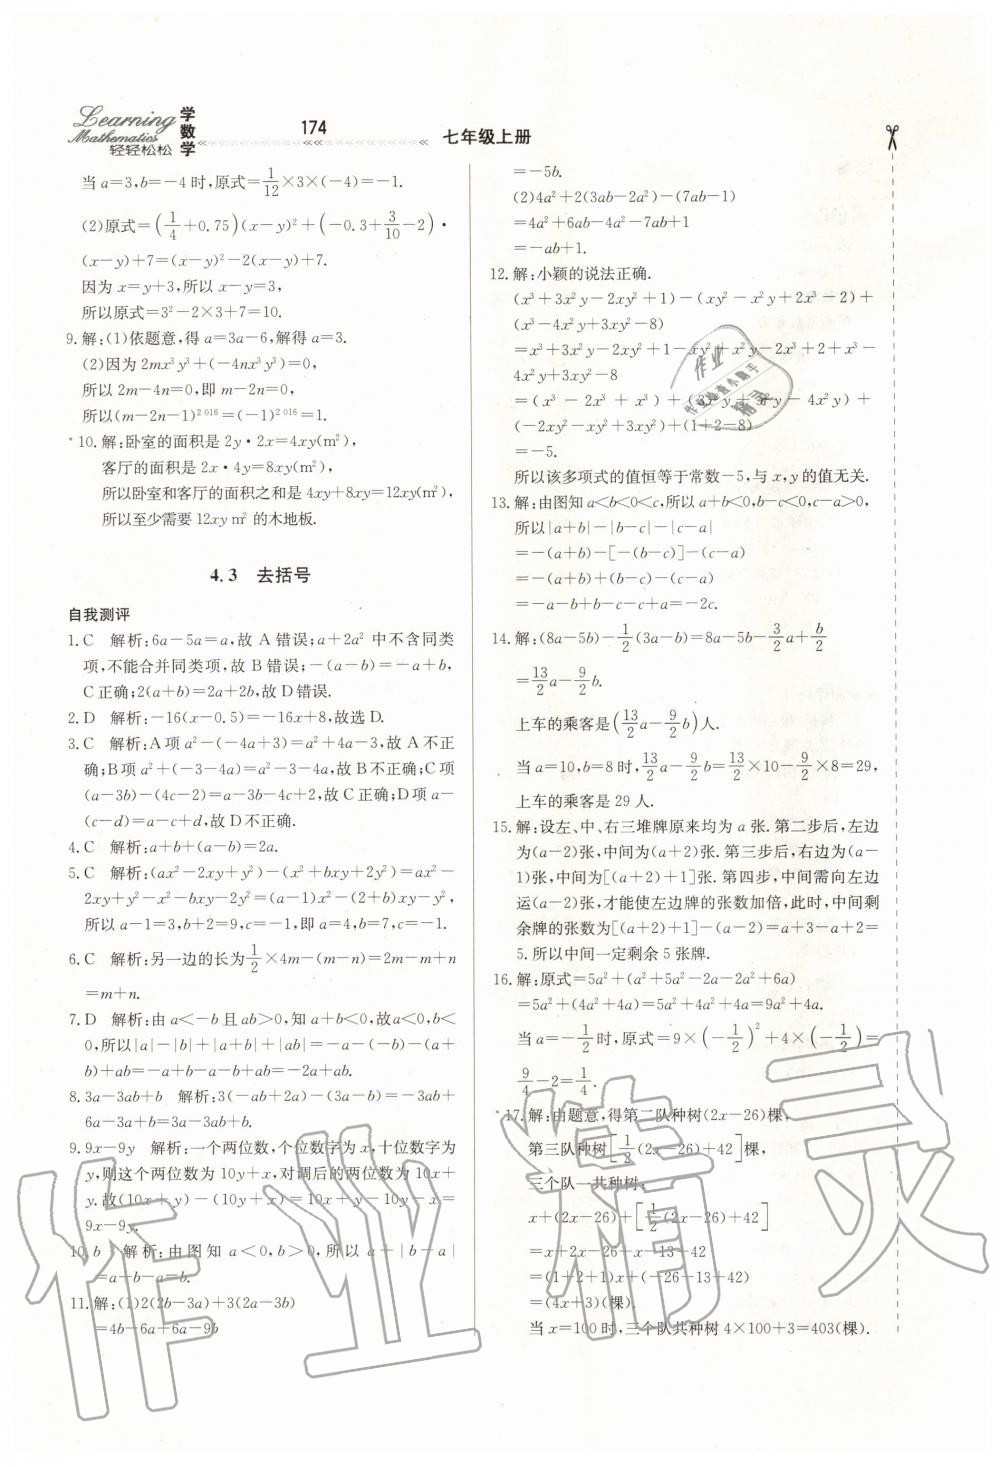 Learning
Mathematics
轻轻松松
学数学
174
七年级上册
当a=3,b=-4时,原式=1/12×3×(-4)=-1.
(2)原式=(1/4+0.75)(x-y)²+(-0.3+3/10-2)·
(x-y)+7=(x-y)²-2(x-y)+7.
因为x=y+3,所以x-y=3,
所以原式=3²-2×3+7=10.
9.解:(1)依题意,得a=3a-6,解得a=3.
(2)因为2mx³y³+(-4nx³y³)=0,
所以2m-4n=0,即m-2n=0,
所以(m-2n-1)²⁰¹⁶=(-1)²⁰¹⁶=1.
*10.解:卧室的面积是2y·2x=4xy(m²),
客厅的面积是2x·4y=8xy(m²),
所以卧室和客厅的面积之和是4xy+8xy=12xy(m²),
所以至少需要12xy m²的木地板.
4.3 去括号
自我测评
1.C 解析:6a-5a=a,故A错误;a+2a²中不含同类
项,不能合并同类项,故B错误;-(a-b)=-a+b,
C正确;2(a+b)=2a+2b,故D错误.
2.D 解析:-16(x-0.5)=-16x+8,故选D.
3.C 解析:A项a²-(-4a+3)=a²+4a-3,故A不正
确;B项a²+(-3-4a)=a²-3-4a,故B不正确;C项
(a-3b)-(4c-2)=a-3b-4c+2,故C正确;D项a-
(c-d)=a-c+d,故D不正确.
4.C 解析:a+b+(a-b)=2a.
5.C 解析:(ax²-2xy+y²)-(x²+bxy+2y²)=ax²-
2xy+y²-x²-bxy-2y²=(a-1)x²-(2+b)xy-y²,
所以a-1=3,b+2=9,c=-1,即a=4,b=7,c=-1.
6.C 解析:另一边的长为1/2×4m-(m-n)=2m-m+n
=m+n.
7.D 解析:由a<-b且ab>0,知a+b<0,故a<0,b<
0,所以|a|-|b|+|a+b|+|ab|=-a-(-b)-(a+
b)+ab=-a+b-a-b+ab=-2a+ab.
8.3a-3ab+b 解析:3(-ab+2a)-(3a-b)=-3ab+
6a-3a+b=3a-3ab+b.
9.9x-9y 解析:一个两位数,个位数字为x,十位数字为
y,则这个两位数为10y+x,对调后的两位数为10x+
y.故(10x+y)-(10y+x)=10x+y-10y-x=
9x-9y.
10.b 解析:由图知a<0,b>0,所以a+|b-a|
=a+b-a=b.
11.解:(1)2(2b-3a)+3(2a-3b)
=4b-6a+6a-9b
=-5b.
(2)4a²+2(3ab-2a²)-(7ab-1)
=4a²+6ab-4a²-7ab+1
=-ab+1.
12.解:小颖的说法正确.
(x³+3x²y-2xy²+1)-(xy²-x²y+2x³-2)+
(x³-4x²y+3xy²-8)
=x³+3x²y-2xy²+1-xy²+x²y-2x³+2+x³-
4x²y+3xy²-8
=(x³-2x³+x³)+(3x²y+x²y-4x²y)+
(-2xy²-xy²+3xy²)+(1+2-8)
=-5.
所以该多项式的值恒等于常数-5,与x,y的值无关.
13.解:由图知a<b<0<c,所以a+b<0,b-c<0,c-a>0,
所以|a+b|-|b-c|-|c-a|
=-(a+b)-[-(b-c)]-(c-a)
=-(a+b)+(b-c)-(c-a)
=-a-b+b-c-c+a=-2c.
14.解:(8a-5b)-1/2(3a-b)=8a-5b-3/2a+b/2
=13/2a-9/2b.
上车的乘客是(13/2a-9/2b)人.
当a=10,b=8时,13/2a-9/2b=13/2×10-9/2×8=29,
上车的乘客是29人.
15.解:设左、中、右三堆牌原来均为a张.第二步后,左边
为(a-2)张,中间为(a+2)张.第三步后,右边为(a-
1)张,中间为[(a+2)+1]张.第四步,中间需向左边
运(a-2)张,才能使左边牌的张数加倍,此时,中间剩
余牌的张数为[(a+2)+1]-(a-2)=a+3-a+2=
5.所以中间一定剩余5张牌.
16.解:原式=5a²+(a²+5a²-2a-2a²+6a)
=5a²+(4a²+4a)=5a²+4a²+4a=9a²+4a.
当a=-1/2时,原式=9×(-1/2)²+4×(-1/2)=
9/4-2=1/4.
*17.解:由题意,得第二队种树(2x-26)棵,
第三队种树[1/2(2x-26)+42]棵,
三个队一共种树:
x+(2x-26)+[1/2(2x-26)+42]
=x+2x-26+x-13+42
=(1+2+1)x+(-26-13+42)
=(4x+3)(棵).
当x=100时,三个队共种树4×100+3=403(棵).
作业精灵